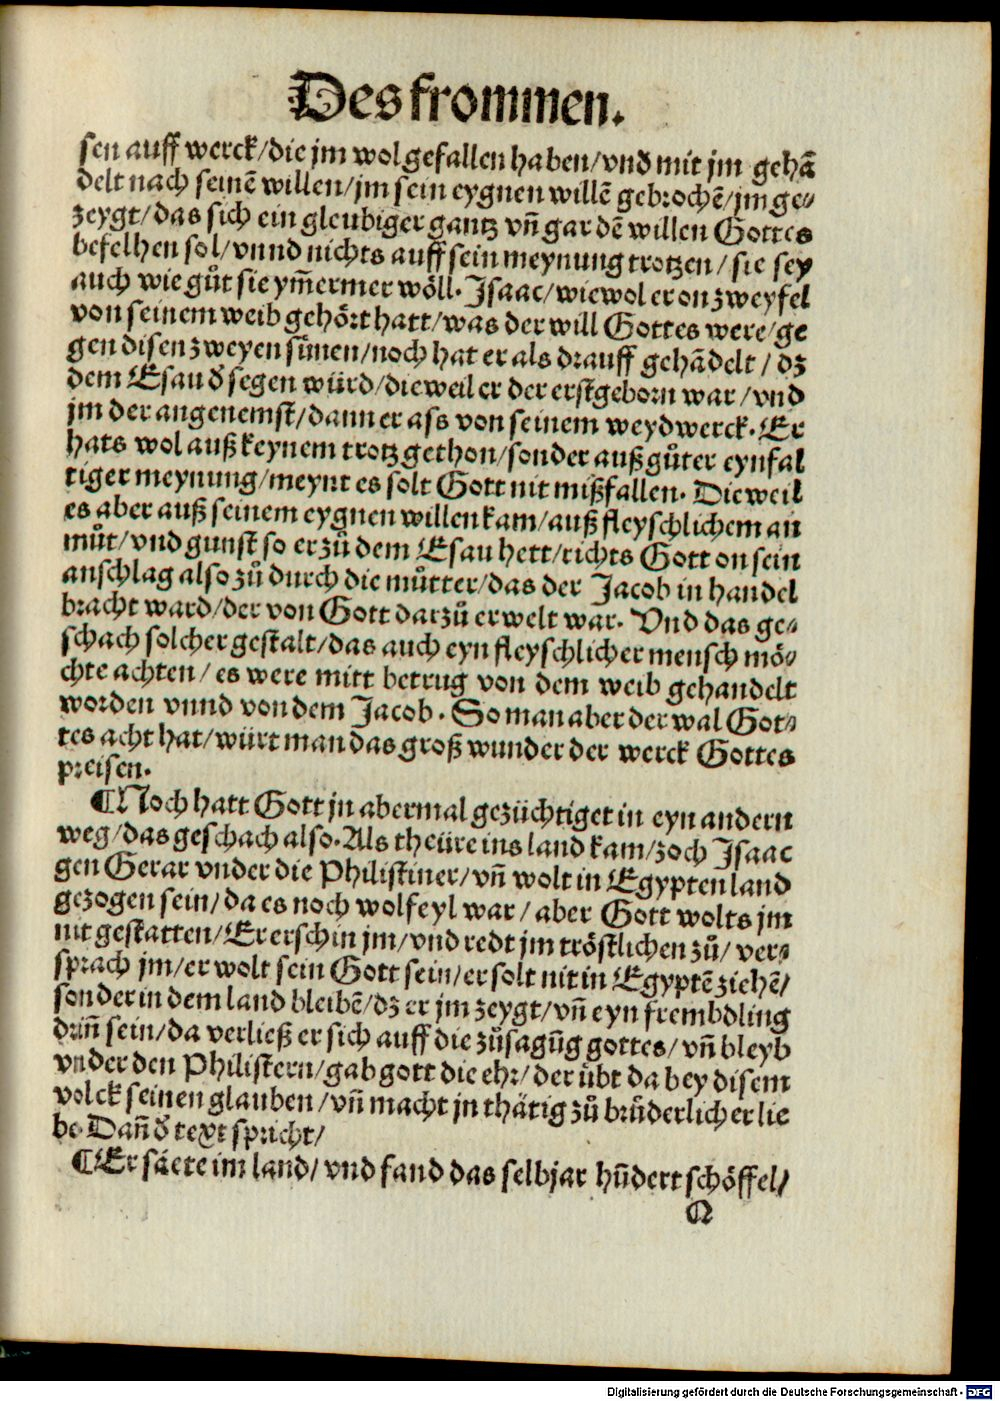 Des frommen.
sen auff werck/die jm wolgefallen haben/vnd mit jm gehā
delt nach seinē willen/jm sein eygnen willē gebrochē/jm ge⸗
zeygt/das sich ein gleubiger gantz vn̄ gar dē willen Gottes
befelhen sol/vnnd nichts auff sein meynung trotzen/sie sey
auch wie gůt sie ym̄ermer wöll. Isaac/wiewol er on zweyfel
von seinem weib gehört hatt/was der will Gottes were/ge
gen disen zweyen sünen/noch hat er als drauff gehādelt/dz
dem Esau d̕ segen würd/dieweil er der erstgeborn war/vnd
jm der angenemst/dann er ass von seinem weydwerck. Er
hats wol auß keynem trotz gethon/sonder auß gůter eynfal
tiger meynung/meynt es solt Gott nit mißfallen. Dieweil
es aber auß seinem eygnen willen kam/auß fleyschlichem an
můt/vnd gunst so er zů dem Esau hett/richts Gott on sein
anschlag also zů durch die můtter/das der Jacob in handel
bracht ward/der von Gott darzů erwelt war. Vnd das ge⸗
schach solcher gestalt/das auch eyn fleyschlicher mensch mö⸗
chte achten/es were mitt betrug von dem weib gehandelt
worden vnnd von dem Jacob. So man aber der wal Got⸗
tes acht hat/würt man das groß wunder der werck Gottes
preisen.
¶Noch hatt Gott jn abermal gezüchtiget in eyn andern
weg/das geschach also. Als theüre ins land kam/zoch Isaac
gen Gerar vnder die Philistiner/vn̄ wolt in Egypten land
gezogen sein/da es noch wolfeyl war/aber Gott wolts jm
nit gestatten/Er erschin jm/vnd redt jm tröstlichen zů/ver⸗
sprach jm/er wolt sein Gott sein/er solt nit in Egyptē ziehē/
sonder in dem land bleibē/dz er jm zeygt/vn̄ eyn frembdling
drin̄ sein/da verließ er sich auff die zůsagūg gottes/vn̄ bleyb
vnder den Philistern/gab gott die ehr/der übt da bey disem
volck seinen glauben/vn̄ macht jn thätig zů brůderlicher lie
be. Dan̄ d̕ text spricht/
¶Er säete im land/vnd fand das selb jar hūdert schöffel/
Q
Digitalisierung gefördert durch die Deutsche Forschungsgemeinschaft - DFG